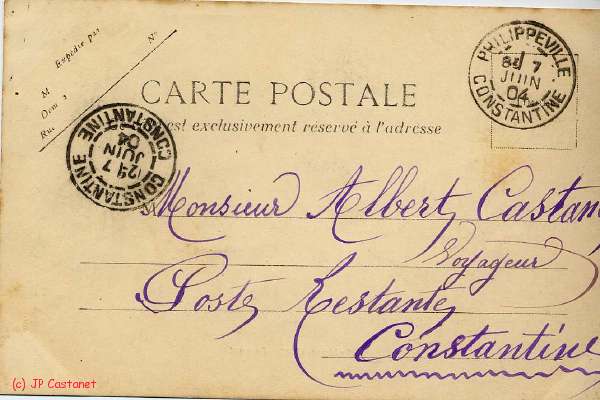 Expédié par
M
Dem
Rue
N°
CARTE POSTALE
est exclusivement réservé à l'adresse
PHILIPPEVILLE
7
JUIN
04
CONSTANTINE
CONSTANTINE
7
JUIN
04
CONSTANTINE
Monsieur Albert Castan
Voyageur
Poste Restante
Constantine
(c) JP Castanet